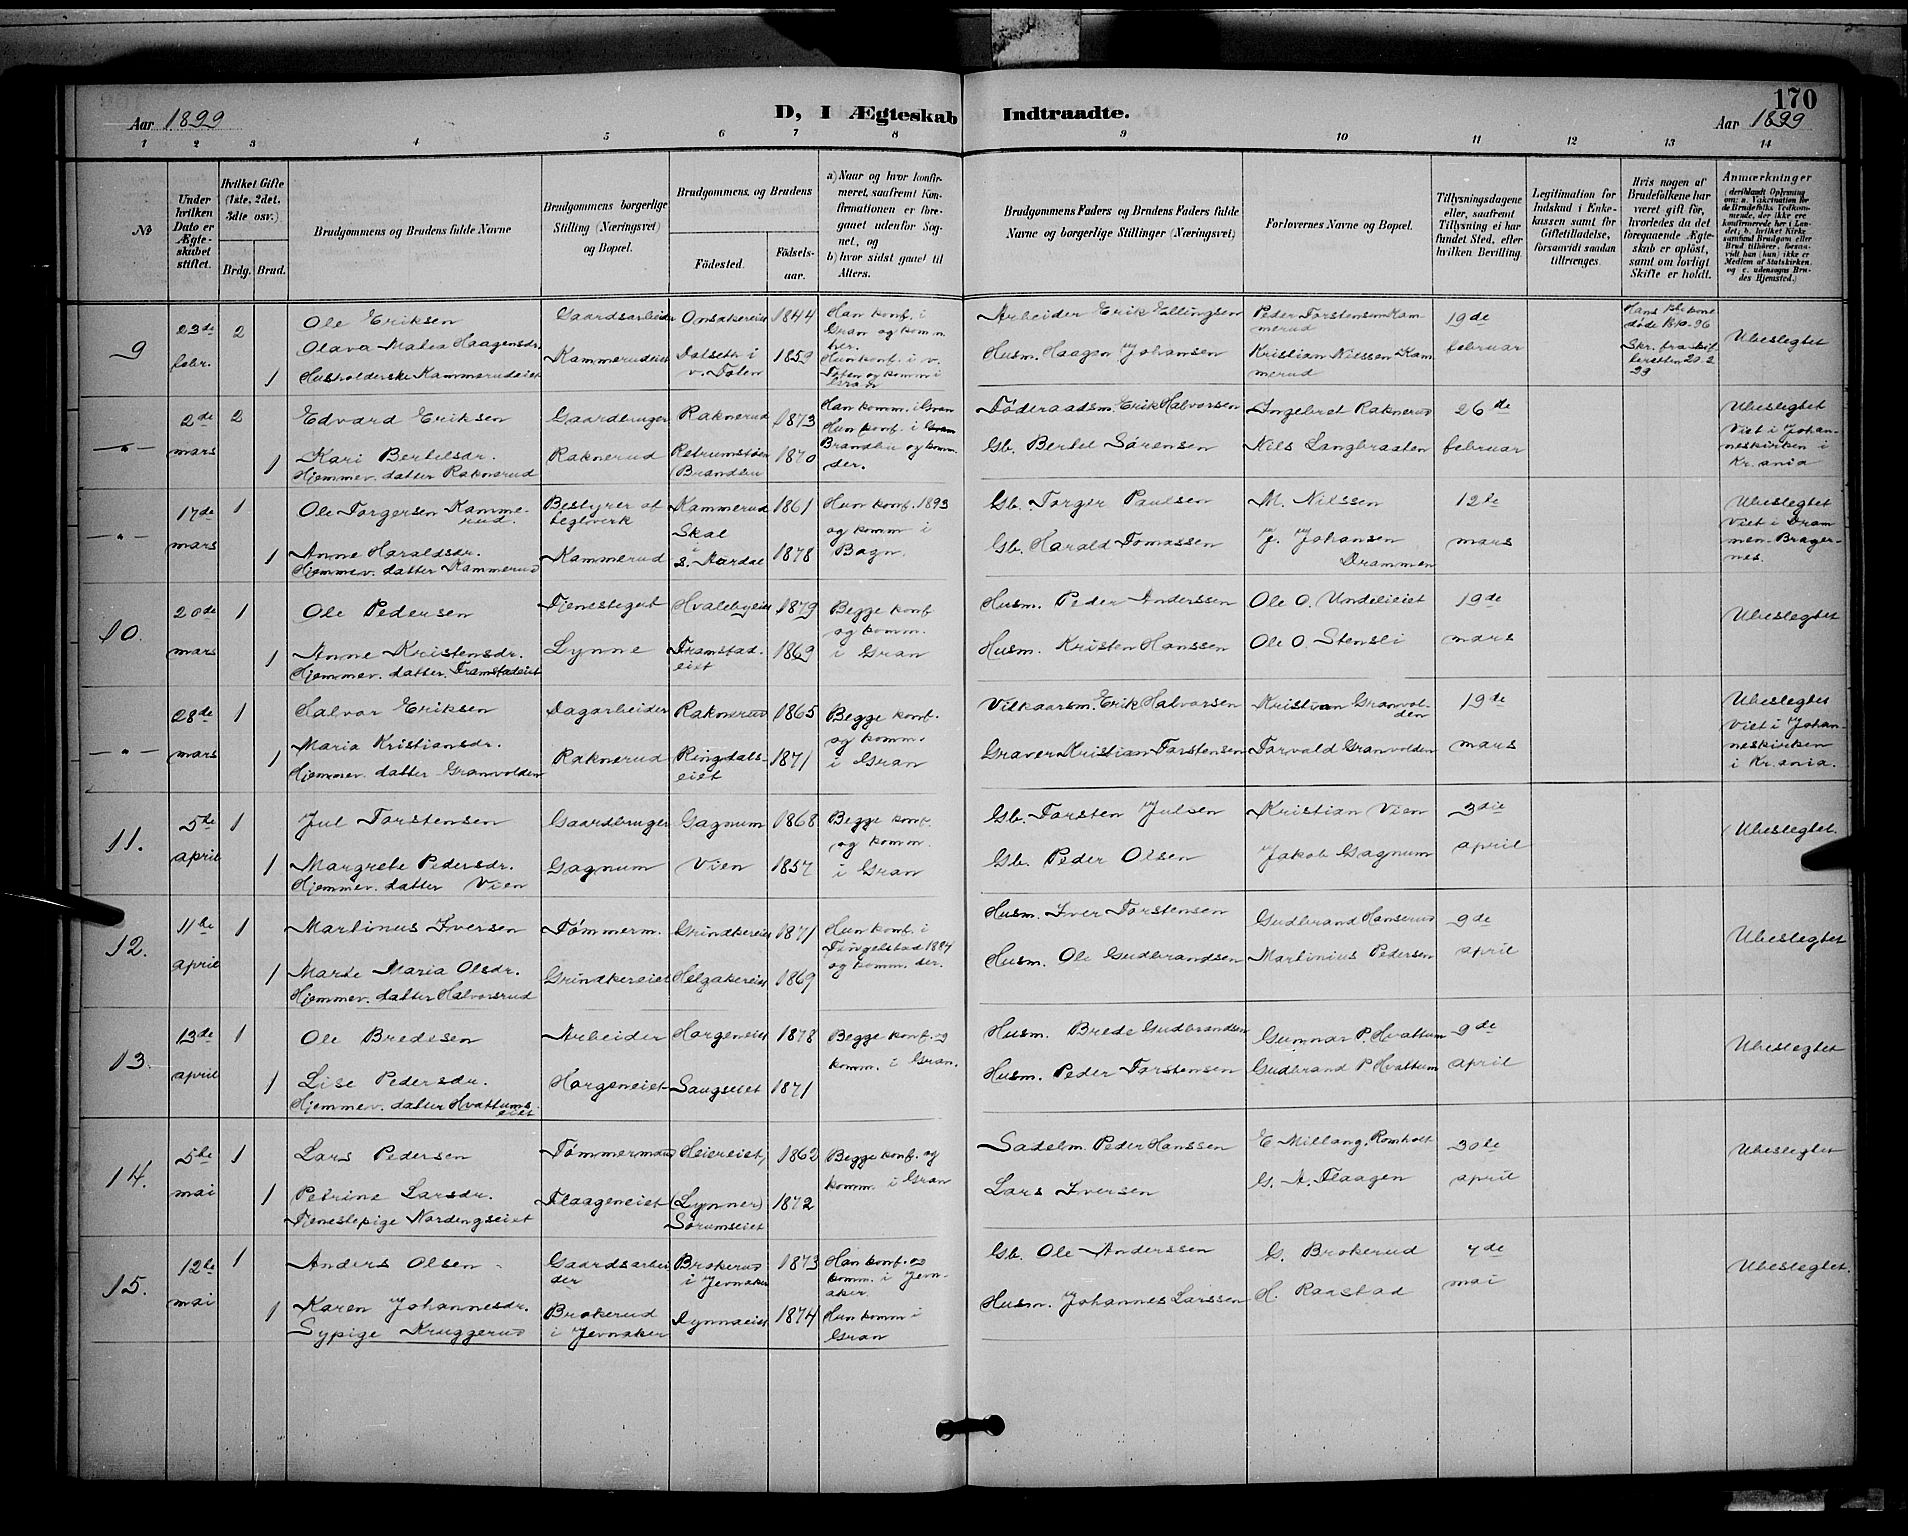 170
Aar 1899
D, I Ægteskab Indtraadte.
Aar 1899
1 2 3 4 5 6 7 8 9 10 11 12 13 14
No
Under hvilken Dato er Ægteskabet stiftet.
Hvilket Gifte (1ste, 2det, 3die osv.)
Brdg. Brud.
Brudgommens og Brudens fulde Navne
Brudgommens borgerlige Stilling (Næringsvei) og Bopæl.
Brudgommens, og Brudens
Födested.
Födselsaar.
a) Naar og hvor konfirmeret, saafremt Konfirmationen er foregaaet udenfor Sognet, og
b) hvor sidst gaaet til Alters.
Brudgommens Faders og Brudens Faders fulde Navne og borgerlige Stillinger (Næringsvei)
Forlovernes Navne og Bopæl.
Tillysningsdagene eller, saafremt Tillysning ei har fundet Sted, efter hvilken Bevilling.
Legitimation for Indskud i Enkekassen samt for Giftetilladelse, forsaavidt saadan tiltrænges.
Hvis nogen af Brudefolkene har været gift før, hvorledes da det foregaaende Ægteskab er oplöst, samt om lovligt Skifte er holdt.
Anmærkninger
(deriblandt Oplysning om: a. Vakcination for de Brudefolks Vedkommende, der ikke ere konfirmerede her i Landet; b. hvilket Kirkesamfund Brudgom eller Brud tilhörer, forsaavidt han (hun) ikke er Medlem af Statskirken, og c. udensogns Brudes Hjemsted.)
9
23de febr.
2
Ole Eriksen
Gaardsarbeider
Onsakereiet
1844
Han konf. i Gran og komm. her.
Arbeider Erik Ellingsen
Peder Torstensen Kammerud
19de februar
døde
Ubeslegtet
1
Olava Matea Haagensdr.
Husholderske Kammerudeiet
Kammerudeiet
Dalseth i v. Toten
1859
Hun konf. i v. Toten og komm i Gran
Husm. Haagen Johansen
Kristian Nilssen Kammerud
— " —
2de mars
2
Edvard Eriksen
Gaardbruger
Raknerud
1873
Han komm. i Gran
Føderaadsm. Erik Halvorsen
Ingebret Raknerud
26de februar
Ubeslegtet
Viet i Johanneskirken i Kr.ania
1
Kari Bertelsdr.
Hjemmev. datter Raknerud
Raknerud
(Brandbu
1870
Hun konf. i Brandbu og komm. der.
Gb. Bertel Sørensen
Nils Langbraaten
— " —
17de mars
1
Ole Torgersen Kammerud.
Bestyrer af teglverk
Kammerud
1861
Hun konf. 1893 og komm i Bagn.
Gb. Torger Paulsen
M. Nilssen
12te mars
Ubeslegtet
Viet i Drammen-Bragernes.
1
Anne Haraldsdr.
Hjemmev. datter Kammerud
Kammerud
Skal i S. Aurdal
1878
Gb. Harald Tomassen
J. Johansen
Drammen
10.
20de mars
1
Ole Pedersen
Tjenestegut
Hvalebyeiet
1879
Begge konf og komm. i Gran
Husm. Peder Anderssen
Ole O. Undelieiet
19de mars
Ubeslegtet
1
Anne Kristensdr.
Hjemmev. datter. Framstadeiet
Lynne
Framstadeiet
1869
Husm. Kristen Hanssen
Ole O. Stensli
— " —
28de mars
1
Halvor Eriksen
Dagarbeider
Raknerud
1865
Begge konf. og komm. i Gran
Vilkaarsm. Erik Halvorsen
Kristian Granvolden
19de mars
Ubeslegtet
Viet i Johanneskirken i Kr.ania.
1
Maria Kristiansdr.
Hjemmev. datter Granvolden
Raknerud
Ringdalseiet
1871
Graver Kristian Torstensen
Torvald Granvolden
11.
5te april
1
Jul Torstensen
Gaardbruger
Gagnum
1868
Begge konf. og komm. i Gran
Gb. Torsten Julsen
Kristian Vien
3die april
Ubeslegtet.
1
Margrete Pedersdr.
Hjemmev. datter Vien
Gagnum
Vien
1857
Gb. Peder Olsen
Jakob Gagnum
12.
11te april
1
Martinus Iversen
Tømmerm.
Grindkereiet
1871
Hun konf. i Tingelstad 1884 og komm. der.
Husm. Iver Torstensen
Gudbrand Hanserud
9de april
Ubeslegtet
1
Marte Maria Olsdr.
Hjemmev. datter Halvorsrud
Grindkereiet
Helgakereiet
1869
Husm. Ole Gudbrandsen
Martinius Pedersen
13.
13de april
1
Ole Bredesen
Arbeider
Horgeneiet
1878
Begge konf. og komm. i Gran.
Husm. Brede Gudbrandsen
Gunnar P. Hvattum
9de april
Ubeslegtet
1
Lise Pedersdr.
Hjemmev. datter Hvattumseiet
Horgeneiet
Saugseiet
1871
Husm. Peder Torstensen
Gudbrand P Hvattum
14.
5te mai
1
Lars Pedersen
Tømmermand
Heiereiet
1862
Begge konf. og komm. i Gran
Sadelm. Peder Hanssen
E Millang, Romholt
30te april
Ubeslegtet
1
Petrine Larsdr.
Tjenestepige Nordengseiet
Flaageneiet
(Lynner) Sørumseiet
1872
Lars Iversen
G. A. Flaagen
15.
12te mai
1
Anders Olsen
Gaardsarbeider
Brokerud i Jevnaker
1873
Han konf. og komm. i Jevnaker.
Gb. Ole Anderssen
G. Brokerud
7de mai
Ubeslegtet.
1
Karen Johannesdr.
Sypige Kruggerud
Brokerud i Jevnaker
Lynnaeiet
1874
Hun komm i Gran
Husm. Johannes Larssen
H. Raastad